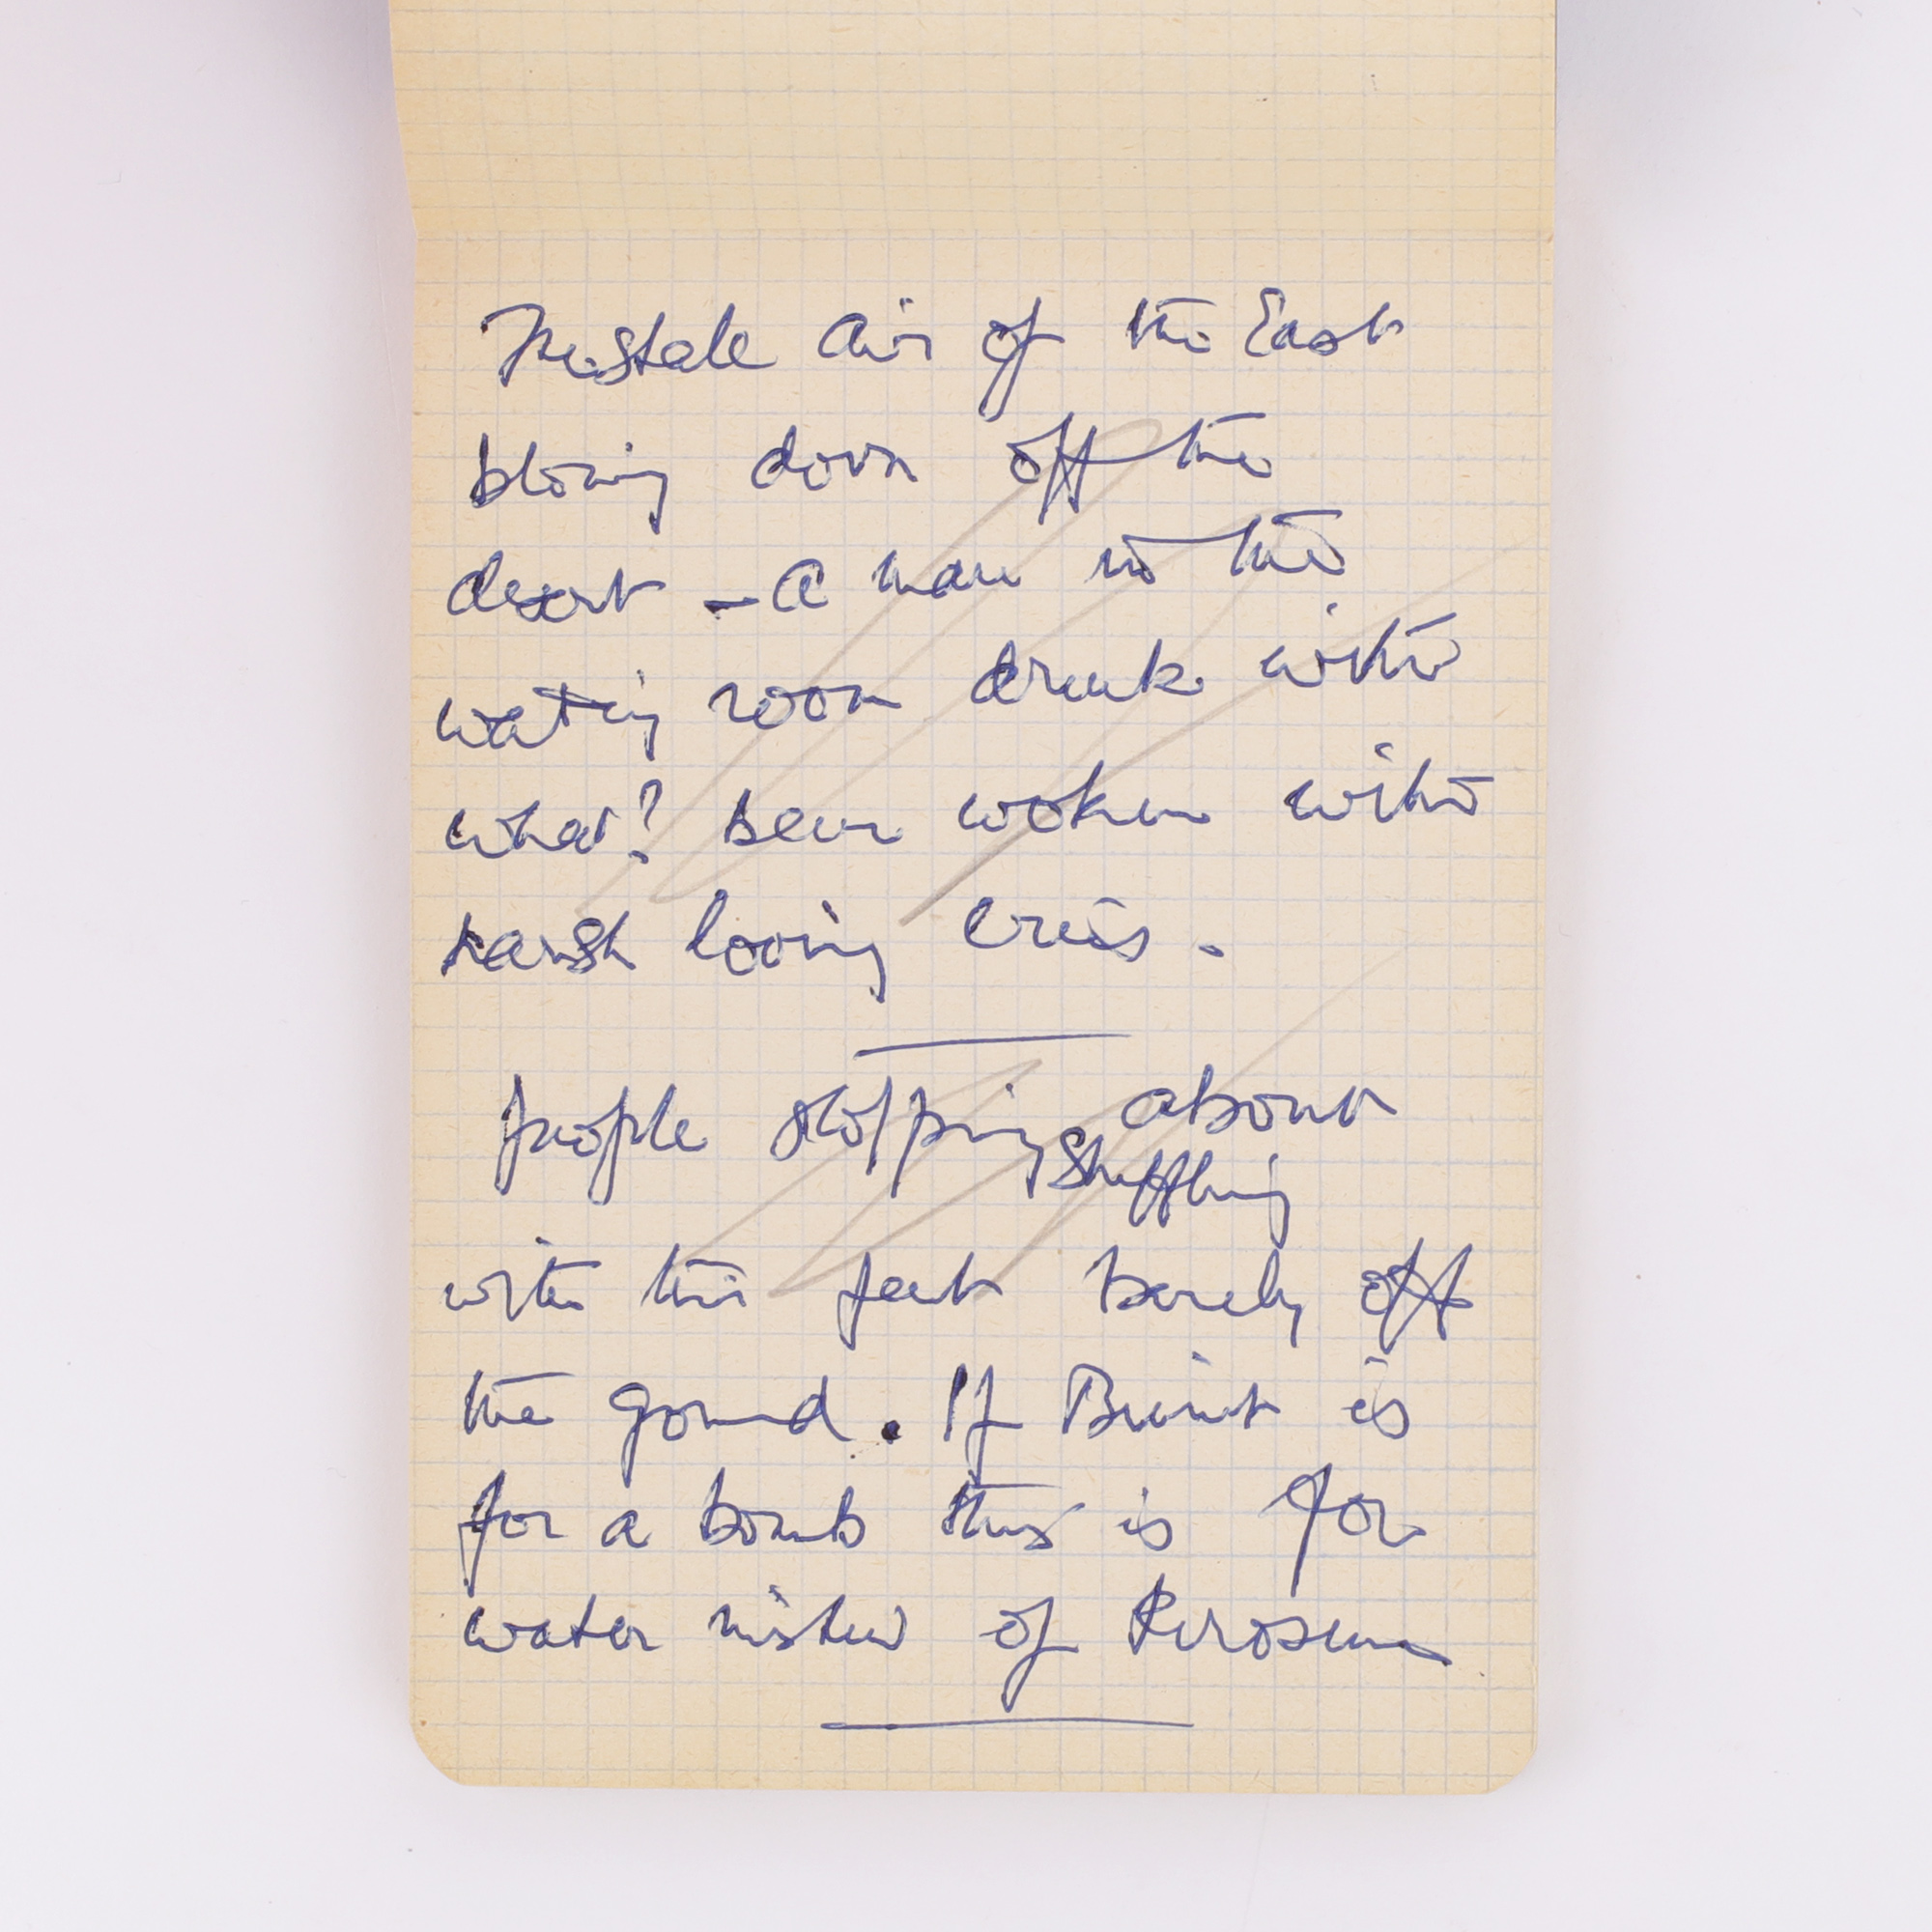 The stale air of the East
blowing down off the
desert - a man in the
waiting room drunk with
what? been woken with
harsh lowing cries.
people slopping about
shuffling
with their feet barely off
the ground. If Beirut is
for a bomb this is for
water of Kerosene